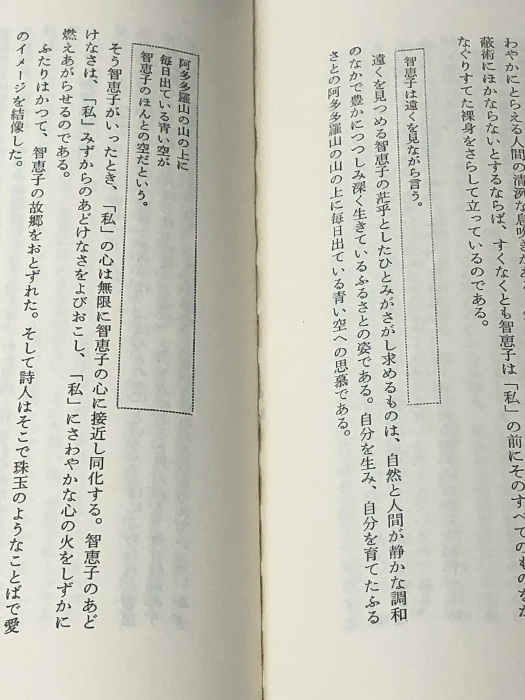 わやかにとらえる人間の清冽な息吹きがある
蔽術にほかならないとするならば、すくなくとも智恵子は「私」の前にそのすべてのものをか
なぐりすてた裸身をさらして立っているのである。
智恵子は遠くを見ながら言う。
遠くを見つめる智恵子の茫乎としたひとみがさがし求めるものは、自然と人間が静かな調和
のなかで豊かにつつしみ深く生きているふるさとの姿である。自分を生み、自分を育てたふる
さとの阿多多羅山の山の上に毎日出ている青い空への思慕である。
阿多多羅山の山の上に
毎日出ている青い空が
智恵子のほんとの空だという。
そう智恵子がいったとき、「私」の心は無限に智恵子の心に接近し同化する。智恵子のあど
けなさは、「私」みずからのあどけなさをよびおこし、「私」にさわやかな心の火をしずかに
燃えあがらせるのである。
ふたりはかつて、智恵子の故郷をおとずれた。そして詩人はそこで珠玉のようなことばで愛
のイメージを結像した。